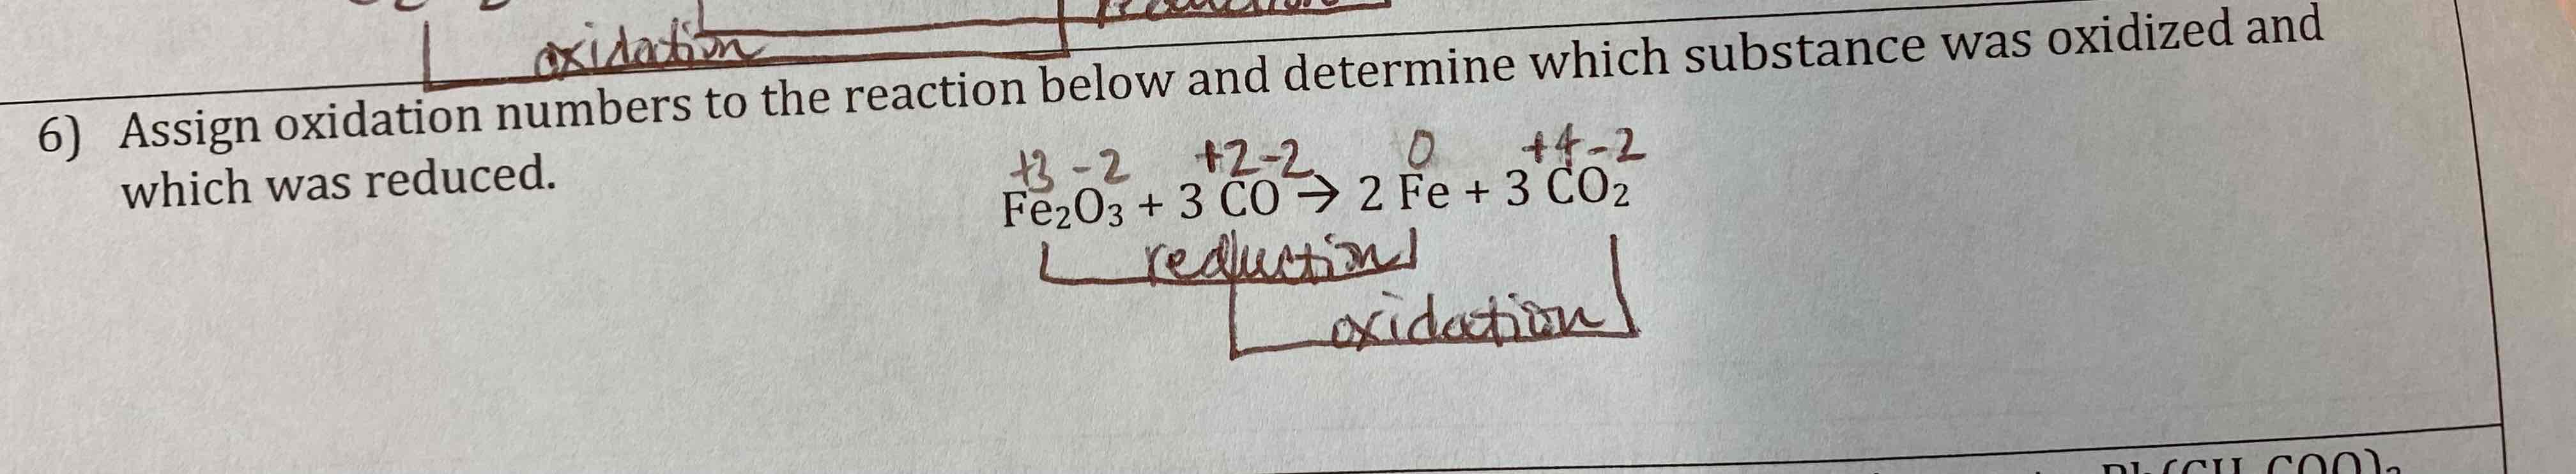 oxidation
6) Assign oxidation numbers to the reaction below and determine which substance was oxidized and
which was reduced.
+3 -2 +2 -2 0 +4 -2
Fe₂O₃ + 3 CO → 2 Fe + 3 CO₂
reduction
oxidation